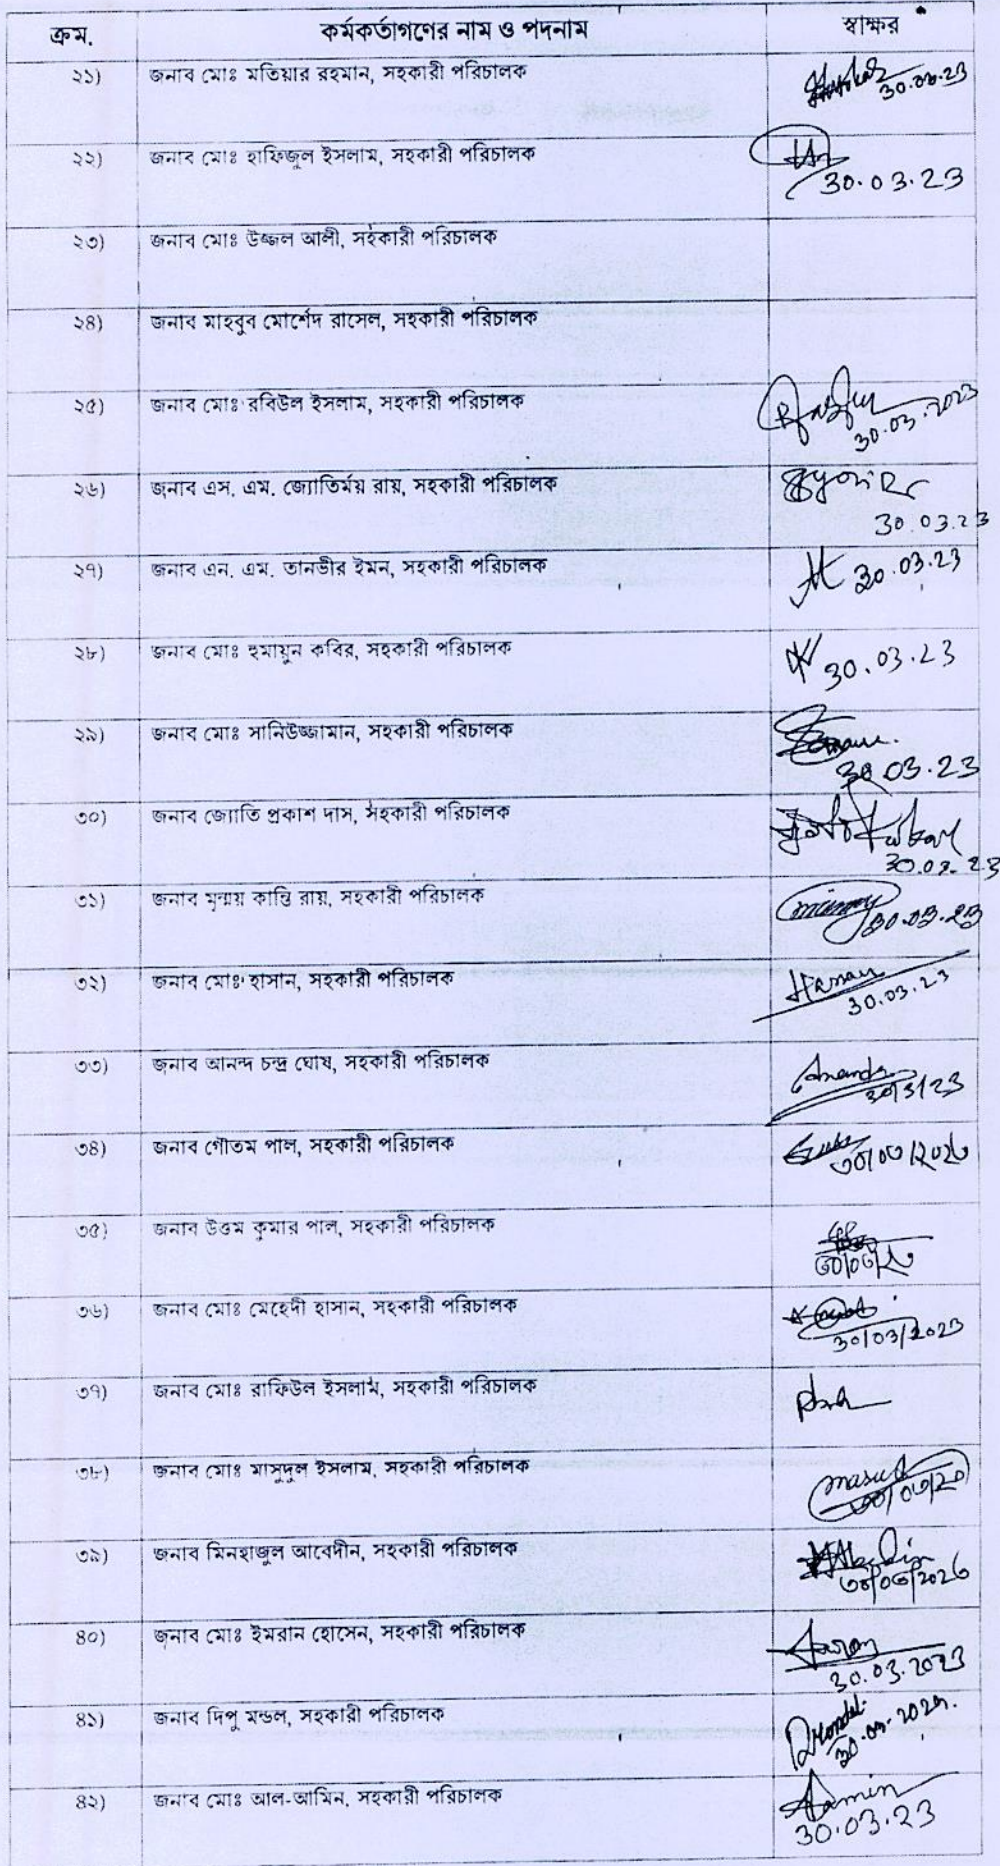 ক্রম. কর্মকর্তাগণের নাম ও পদনাম স্বাক্ষর
২১) জনাব মোঃ মতিয়ার রহমান, সহকারী পরিচালক
30.03.23
২২) জনাব মোঃ হাফিজুল ইসলাম, সহকারী পরিচালক
30.03.23
২৩) জনাব মোঃ উজ্জল আলী, সহকারী পরিচালক
২৪) জনাব মাহবুব মোর্শেদ রাসেল, সহকারী পরিচালক
২৫) জনাব মোঃ রবিউল ইসলাম, সহকারী পরিচালক
30.03.2023
২৬) জনাব এস. এম. জ্যোতির্ময় রায়, সহকারী পরিচালক
30.03.23
২৭) জনাব এন. এম. তানভীর ইমন, সহকারী পরিচালক 30.03.23
২৮) জনাব মোঃ হুমায়ুন কবির, সহকারী পরিচালক 30.03.23
২৯) জনাব মোঃ সানিউজ্জামান, সহকারী পরিচালক
30.03.23
৩০) জনাব জ্যোতি প্রকাশ দাস, সহকারী পরিচালক
৩১) জনাব মৃন্ময় কান্তি রায়, সহকারী পরিচালক
30.03.23
৩২) জনাব মোঃ হাসান, সহকারী পরিচালক Hasan
30.03.23
৩৩) জনাব আনন্দ চন্দ্র ঘোষ, সহকারী পরিচালক Ananda
30/3/23
৩৪) জনাব গৌতম পাল, সহকারী পরিচালক
৩০/০৩/২০২৩
৩৫) জনাব উত্তম কুমার পাল, সহকারী পরিচালক
৩০/০৩/২৩
৩৬) জনাব মোঃ মেহেদী হাসান, সহকারী পরিচালক
30/03/2023
৩৭) জনাব মোঃ রাফিউল ইসলাম, সহকারী পরিচালক
৩৮) জনাব মোঃ মাসুদুল ইসলাম, সহকারী পরিচালক masud
৩০/০৩/২৩
৩৯) জনাব মিনহাজুল আবেদীন, সহকারী পরিচালক
৩০/০৩/২০২৩
৪০) জনাব মোঃ ইমরান হোসেন, সহকারী পরিচালক
30.03.2023
৪১) জনাব দিপু মন্ডল, সহকারী পরিচালক
৪২) জনাব মোঃ আল-আমিন, সহকারী পরিচালক Aamin
30.03.23